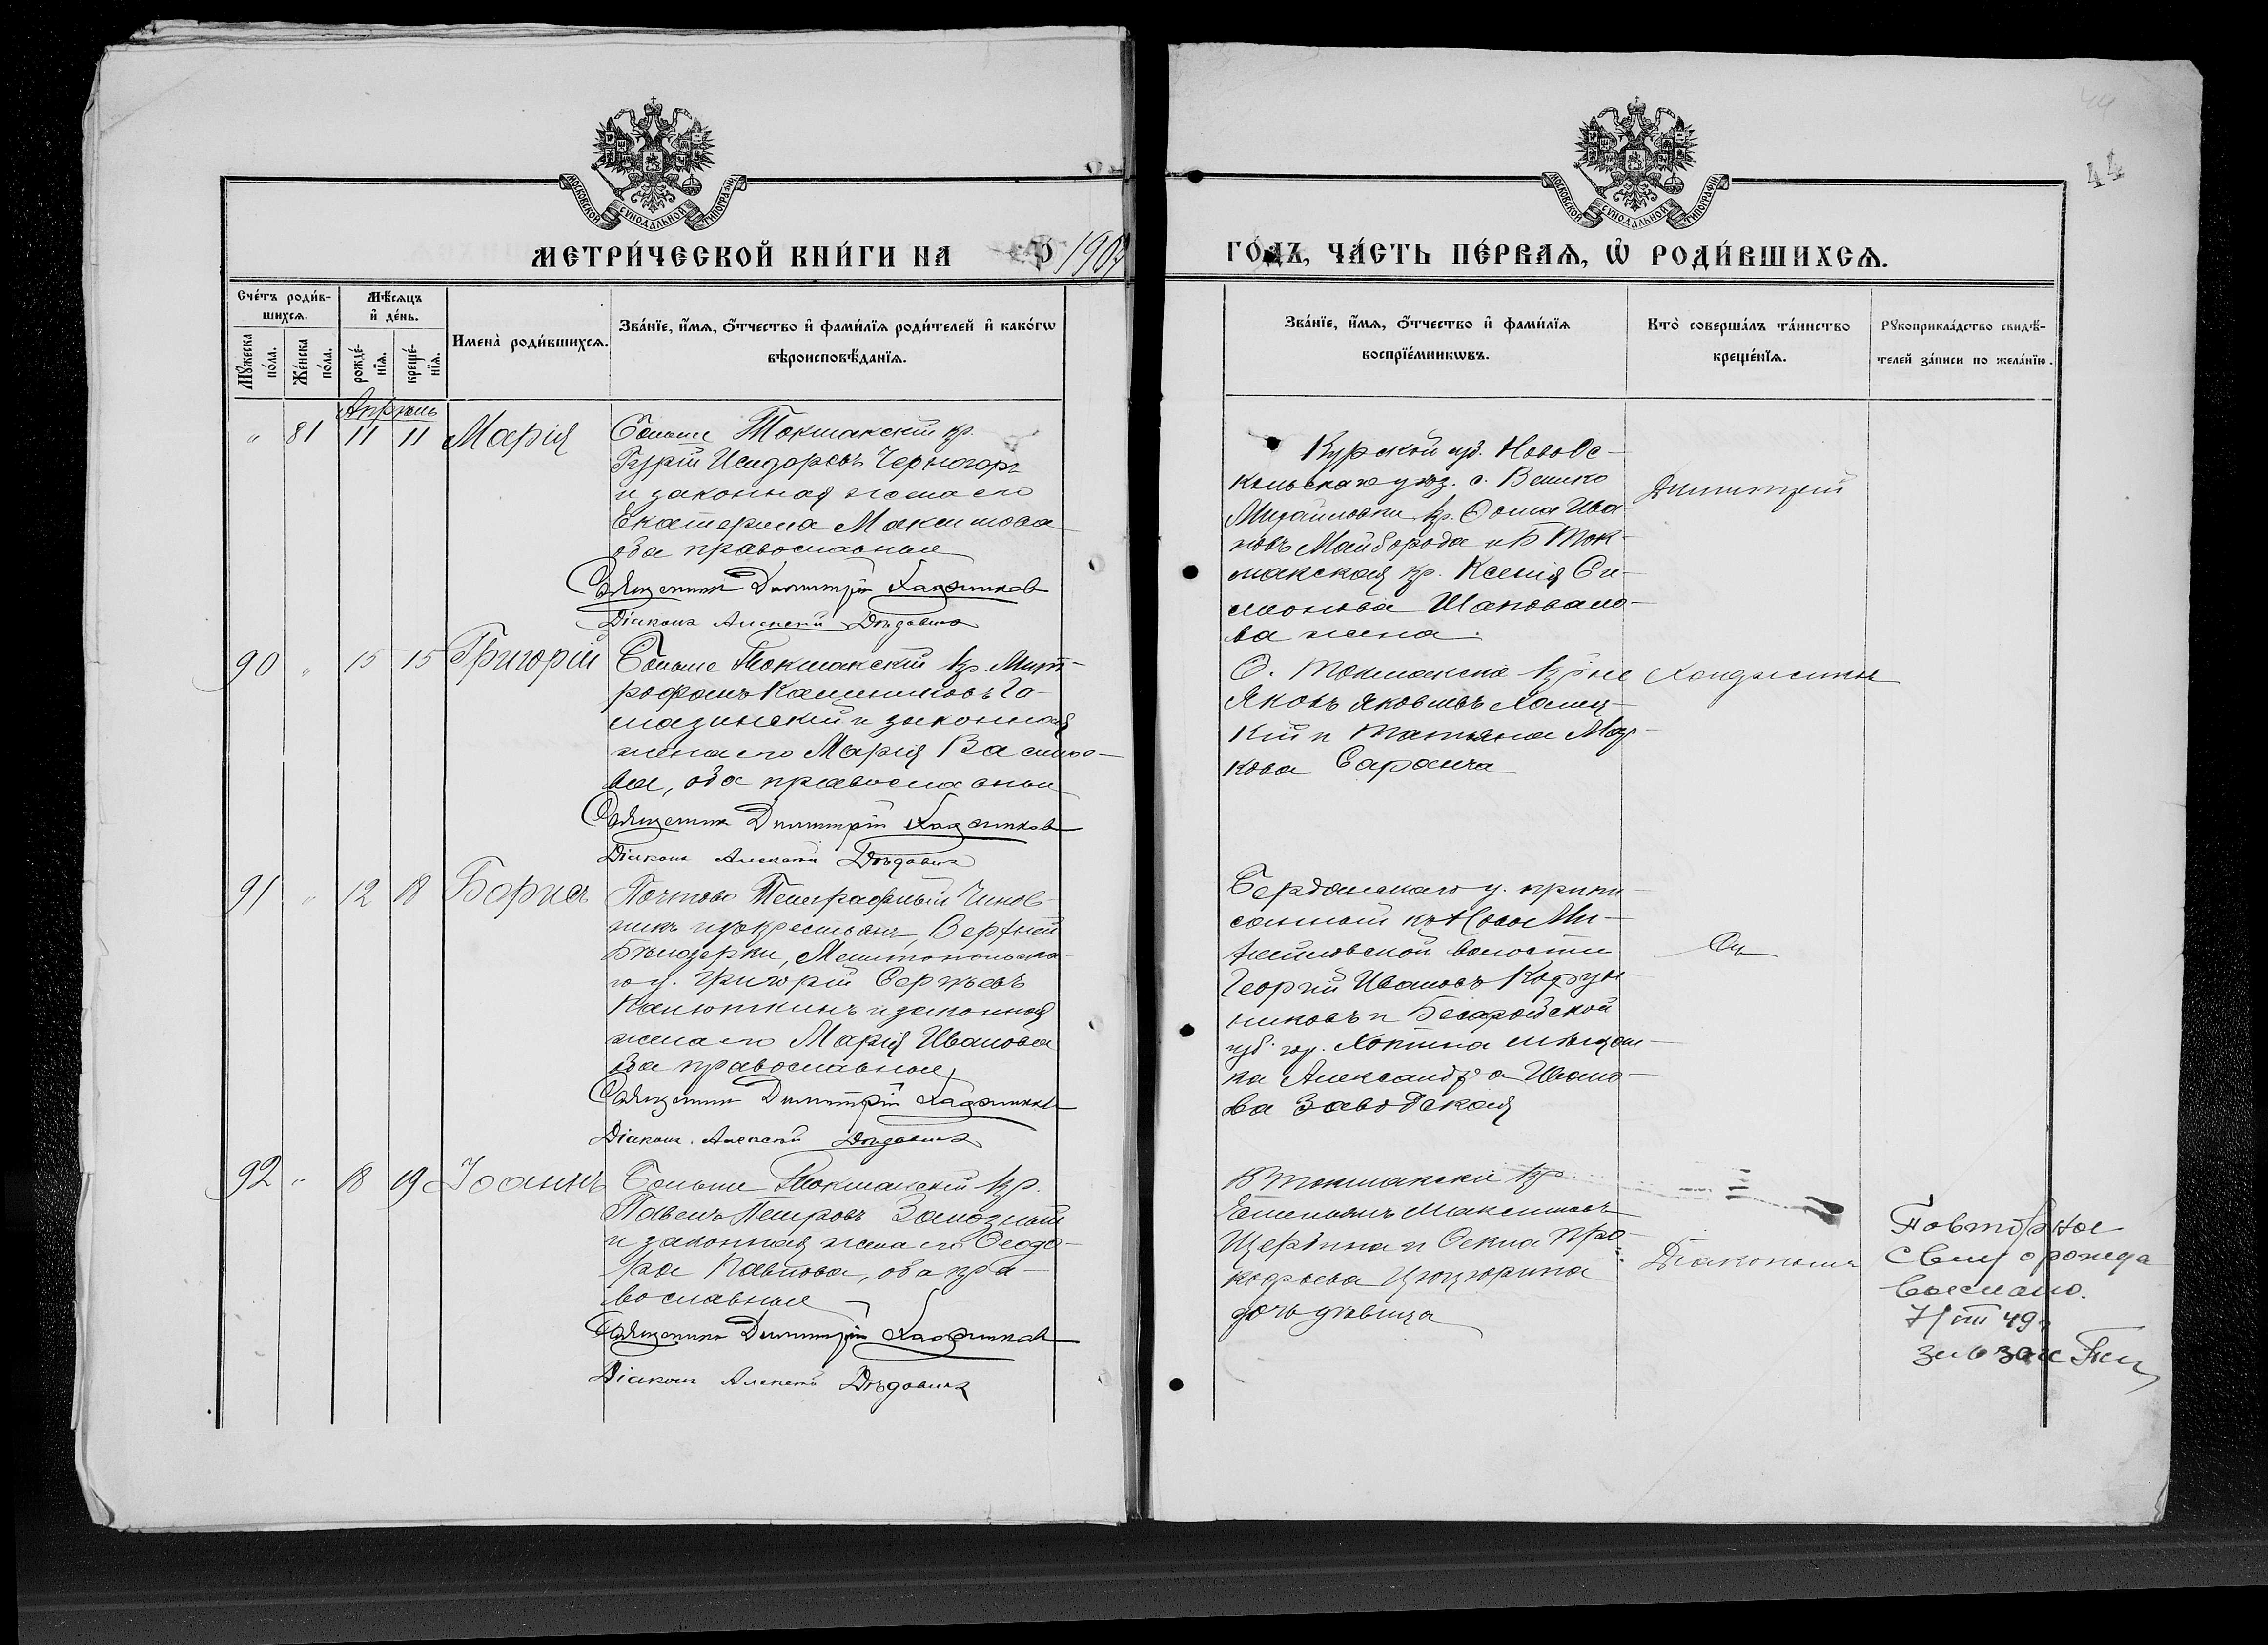 44
44
МОСКОВСКОЙ СѴНОДАЛЬНОЙ ТИПОГРАФІИ
МОСКОВСКОЙ СѴНОДАЛЬНОЙ ТИПОГРАФІИ
МЕТРИ́ЧЕСКОЙ КНИ́ГИ НА 1907
ГО́ДЪ, ЧА́СТЬ ПЕ́РВАѦ, Ѡ҆ РОДИ́ВШИХСѦ.
Сче́тъ роди́в-
шихсѧ.
Мꙋ́жеска по́ла.
Же́нска по́ла.
Мѣ́сѧцъ и҆ де́нь.
рожде́-
нїѧ.
креще́-
нїѧ.
И҆мена̀ роди́вшихсѧ.
Зва́нїе, и҆́мѧ, ѻ҆́тчество и҆ фами́лїѧ роди́телей и҆ како́гѡ
вѣроисповѣ́данїѧ.
Зва́нїе, и҆́мѧ, ѻ҆́тчество и҆ фами́лїѧ
воспрїе́мникѡвъ.
Кто̀ соверша́лъ та́инство
креще́нїѧ.
Рꙋкоприкла́дство свидѣ́-
телей за́писи по жела́нїю.
Апрѣль
" 81 11 11 Марія
Больше Токмакскій кр.
Гурій Исидоровъ Черногоръ
и законная жена его
Екатерина Максимова
оба православные
Священник Димитрій
Діаконъ Алексей
Курской губ. Новоос-
кольскаго уѣз. с. Велико
Михайловки кр. Фома Ива-
новъ Майборода и Б Ток-
макская кр. Ксенія Си-
меонова Шаповало-
ва жена.
Димитрій
90 " 15 15 Григорій
Больше Токмакскій кр. Мит-
рофанъ
и законная
жена его Марія Василье-
ва, оба православные
Священник Димитрій
Діаконъ Алексей
Токмакскіе кр-не
Яковъ Яковлевъ
кій и Татьяна Мар-
кова Саранча
91 " 12 18 Борисъ
Почтово Телеграфный Чинов-
никъ изъ крестьянъ, Верхній
Бѣлозерки, Мелитопольска-
го у. Григорій Сергѣевъ
Калюжинъ и законная
жена его Марія Иванова
оба православные
Священник Димитрій
Діаконъ Алексей
Бердянскаго у. припи-
санный къ Ново Ми-
хайловской волости
Георгій Ивановъ
никовъ и Бесарабской
губ. гор. Хотина мѣщан-
ка Александра Ивано-
ва Заводская
92 " 18 19 Іоаннъ
Больше Токмакскій кр.
Павелъ Петровъ Замозный
и законная жена его Феодо-
ра Павлова, оба пра-
вославные
Священник Димитрій
Діаконъ Алексей
Б Токмакскіе кр.
Емельянъ Максимовъ
Щербина и Фекла Про-
кофьева
дочь дѣвица
Діакономъ
Повторное
Свид о рожд
выслано.
7/III 49г